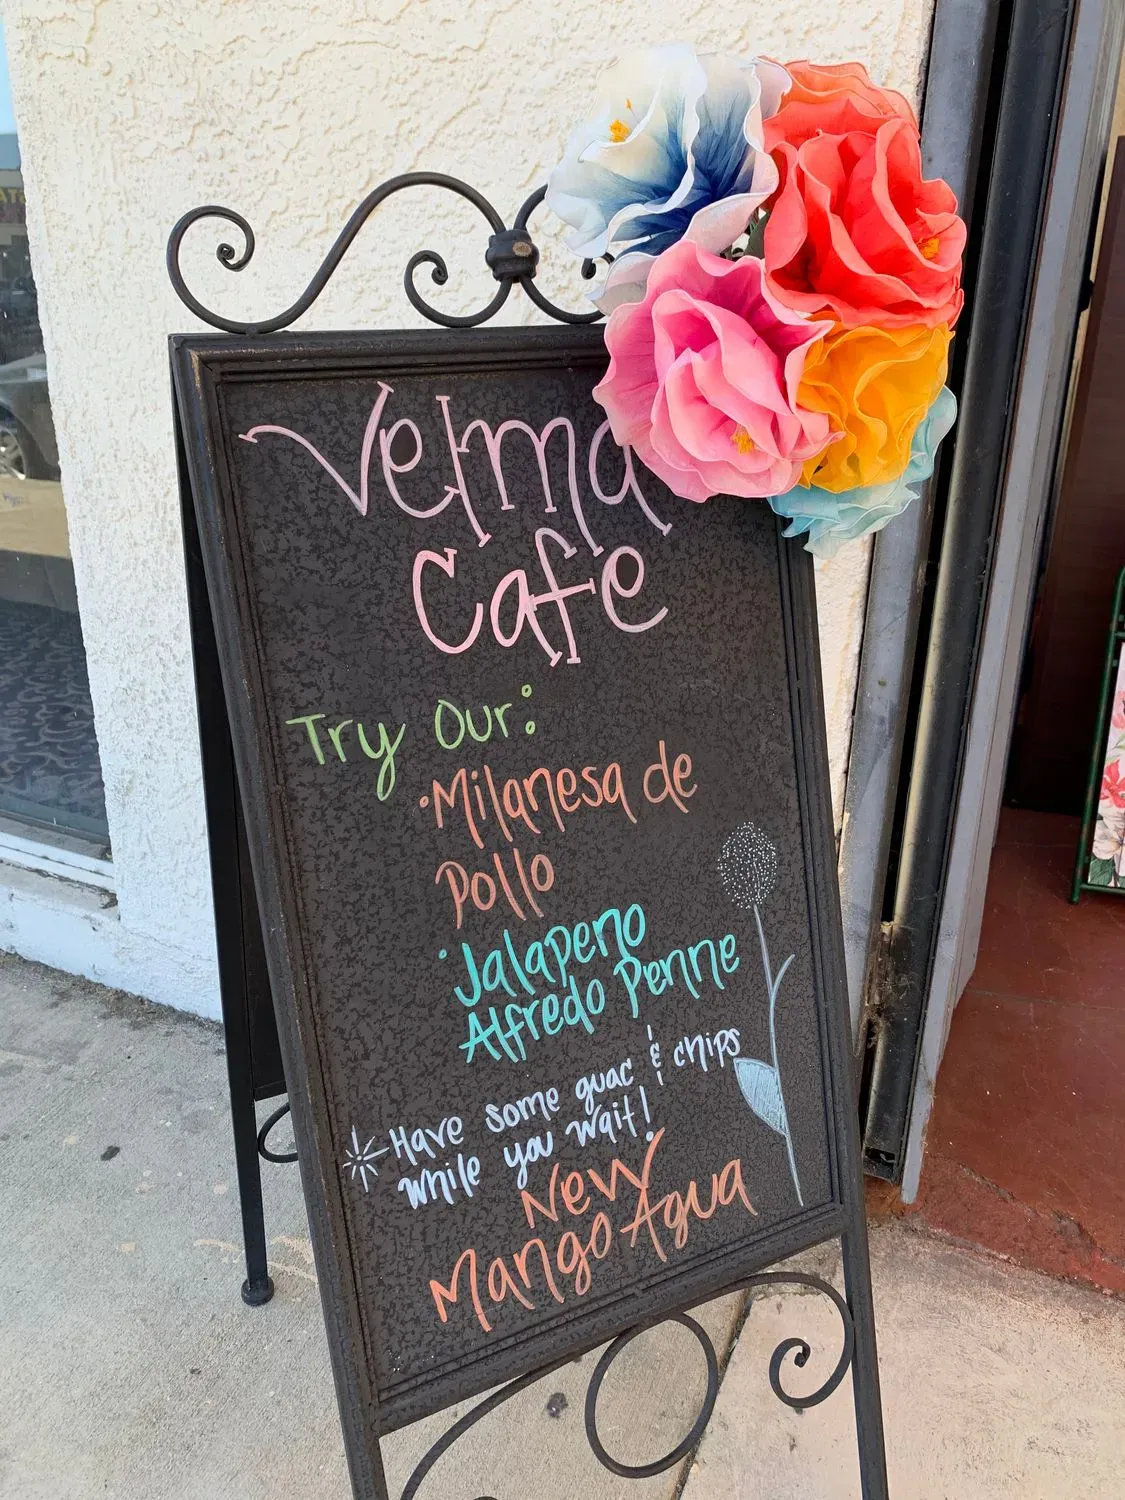 Velma
Cafe
Try Our:
• Milanesa de
Pollo
• Jalapeno
Alfredo Penne
Have some guac & chips
while you wait!
New
Mango Agua